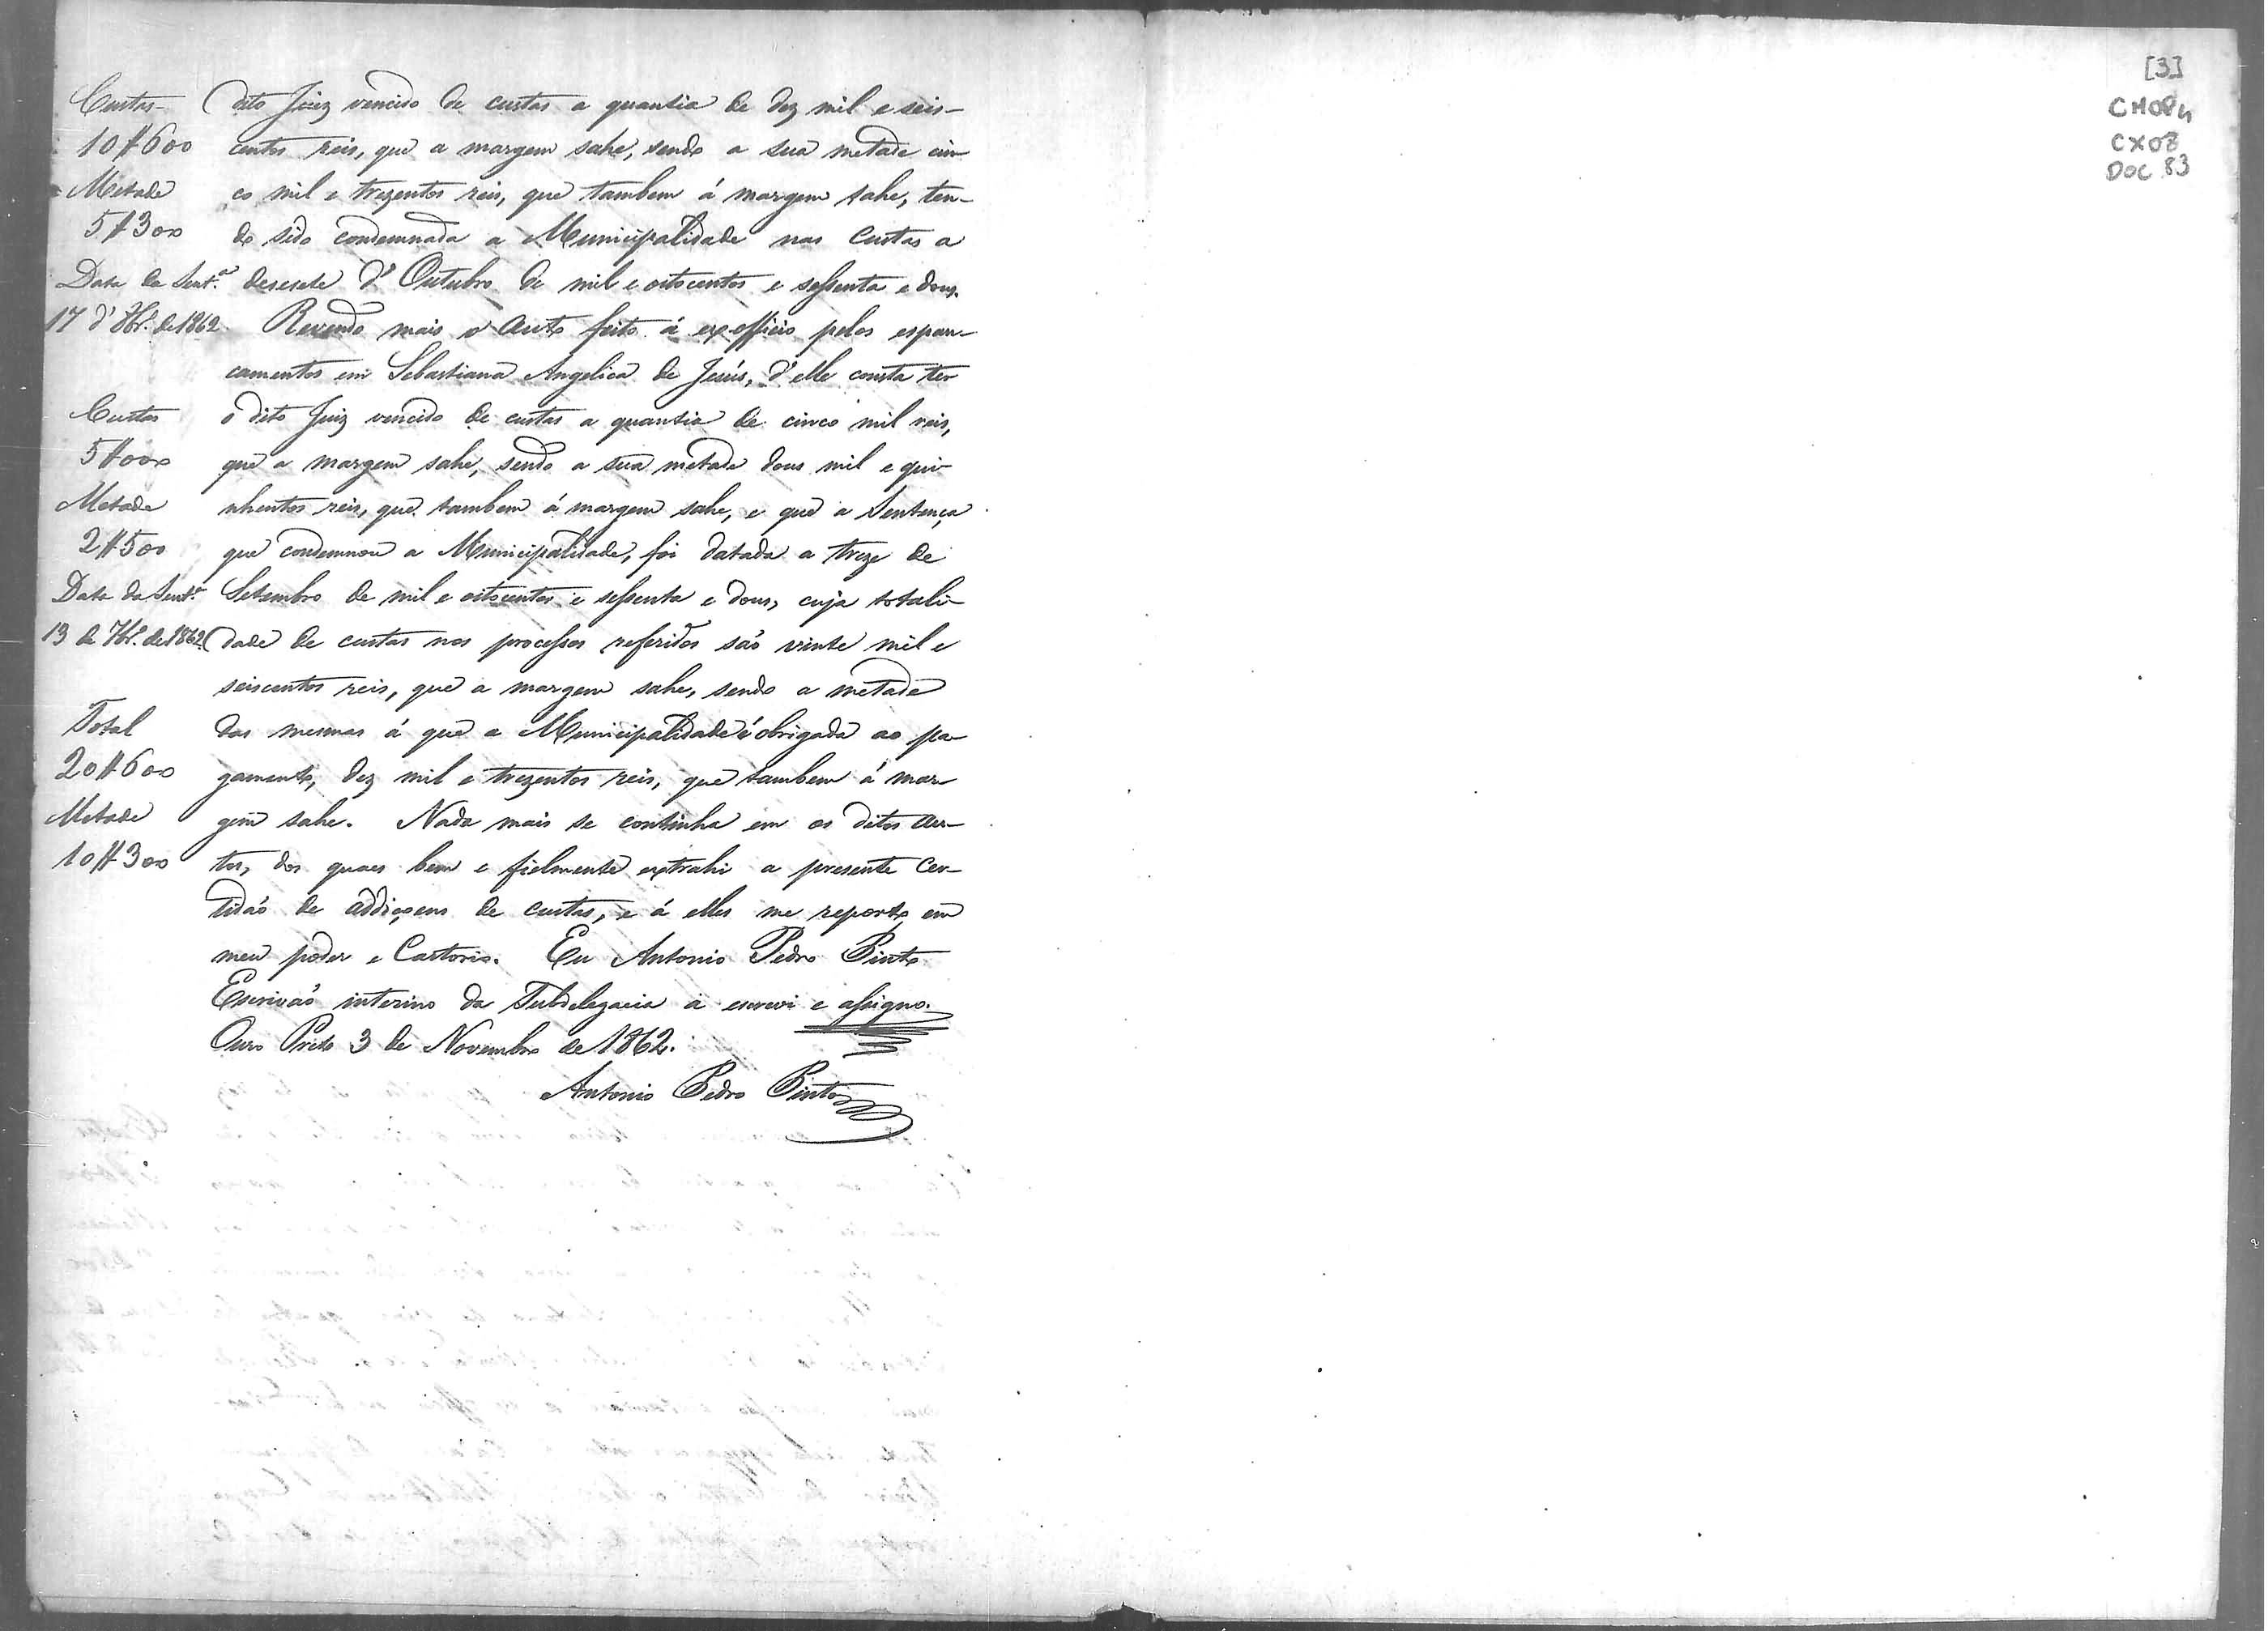 Custas
10$600
Metade
5$300
Data da Sent.ª
17 d'8br.º de 1862
Custas
5$000
Metade
2$500
Data da Sent.ª
13 de 7br.º de 1862
Total
20$600
Metade
10$300
dito Juiz vencido de custas a quantia de dez mil e seis-
centos reis, que a margem sahe, sendo a sua metade cin-
co mil e trezentos reis, que tambem á margem sahe, ten-
do sido condemnada a Municipalidade nas custas a
desesete d'Outubro de mil e oitocentos e sessenta e dous.
Revendo mais o auto feito á ex-officio pelos espan-
camentos em Sebastiana Angelica de Jesús, d'elle consta ter
o dito Juiz vencido de custas a quantia de cinco mil reis,
que a margem sahe, sendo a sua metade dous mil e qui-
nhentos reis, que tambem á margem sahe, e que a Sentença
que condemnou a Municipalidade, foi datada a treze de
Setembro de mil e oitocentos e sessenta e dous, cuja totali-
dade de custas nos processos referidos são vinte mil e
seiscentos reis, que a margem sahe, sendo a metade
das mesmas á que a Municipalidade é obrigada ao pa-
gamento, dez mil e trezentos reis, que tambem á mar-
gem sahe. Nada mais se continha em os ditos au-
tos, dos quaes bem e fielmente extrahi a presente cer-
tidaõ de addiçoens de custas, e á elles me reporto em
meu poder e Cartorio. Eu Antonio Pedro Pinto
Escrivaõ interino da Subdelegacia a escrevi e assigno.
Ouro Preto 3 de Novembro de 1862.
Antonio Pedro Pinto
[3]
CMOP4
CX08
DOC 83